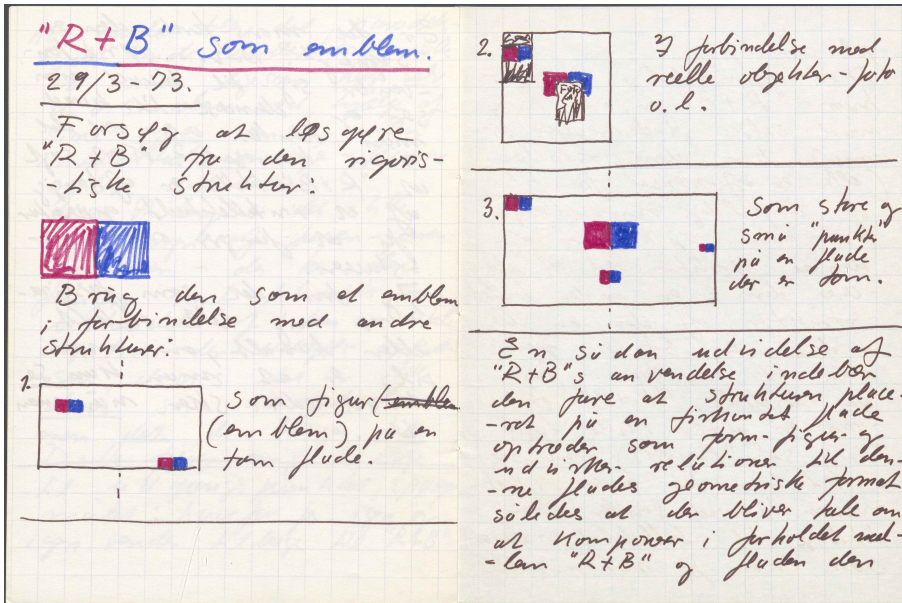 "R+B" som emblem.
29/3-73.
Forsøg at løsgøre
"R+B" fra den rigoris-
-tiske struktur:
Brug den som et emblem
i forbindelse med andre
strukturer:
1.
som figur (emblem
(emblem) på en
tom flade.
2.
I forbindelse med
reelle objekter - foto
o.l.
3.
Som store og
små "punkter"
på en flade
der er tom.
En sådan udvidelse af
"R+B"s anvendelse indebær
den fare at strukturen place-
-ret på en firkantet flade
optræder som form-figur og
udvirker relationer til den-
-ne flades geometriske format
således at der bliver tale om
at komponer i forholdet mel-
-lem "R+B" og fladen den